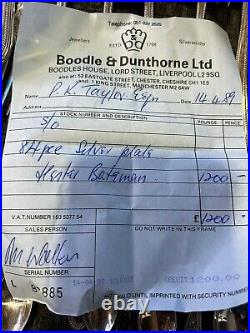 Telephone: 051 032 2525
Jewellers ESTD 1798 Silversmiths
Boodle & Dunthorne Ltd
BOODLES HOUSE, LORD STREET, LIVERPOOL L2 9SQ
also at: 52 EASTGATE STREET, CHESTER, CHESHIRE CH1
1 KING STREET, MANCHESTER M2 6AW
P.K. Taylor Esq 14.4.89
STOCK NUMBER AND DESCRIPTION POUNDS PENCE
S/O
84pce Silver plate
Hester Bateman. 1200 -
V.A.T. NUMBER 163 5377 54 £1200 -
SALES PERSON DO NOT WRITE IN THIS FRAME
SERIAL NUMBER
L 885 CREDIT 1200.00
VOID UNTIL IMPRINTED WITH SECURITY